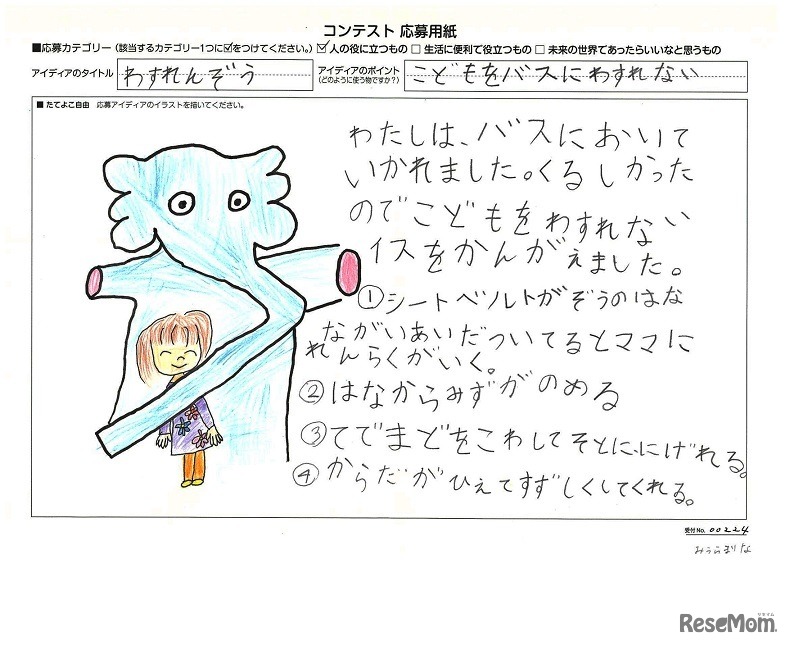 コンテスト 応募用紙
■応募カテゴリー（該当するカテゴリー1つに☑をつけてください。）☑人の役に立つもの □生活に便利で役立つもの □未来の世界であったらいいなと思うもの
アイディアのタイトル わすれんぞう アイディアのポイント（どのように使う物ですか？） こどもをバスにわすれない
■ たてよこ自由 応募アイディアのイラストを描いてください。
わたしは、バスにおいて
いかれました。くるしかった
のでこどもをわすれない
イスをかんがえました。
①シートベルトがぞうのはな
ながいあいだついてるとママに
れんらくがいく。
②はなからみずがのめる
③てでまどをこわしてそとににげれる。
④からだがひえてすずしくしてくれる。
受付No. 00224
みうらまりな
リセマム
ReseMom.